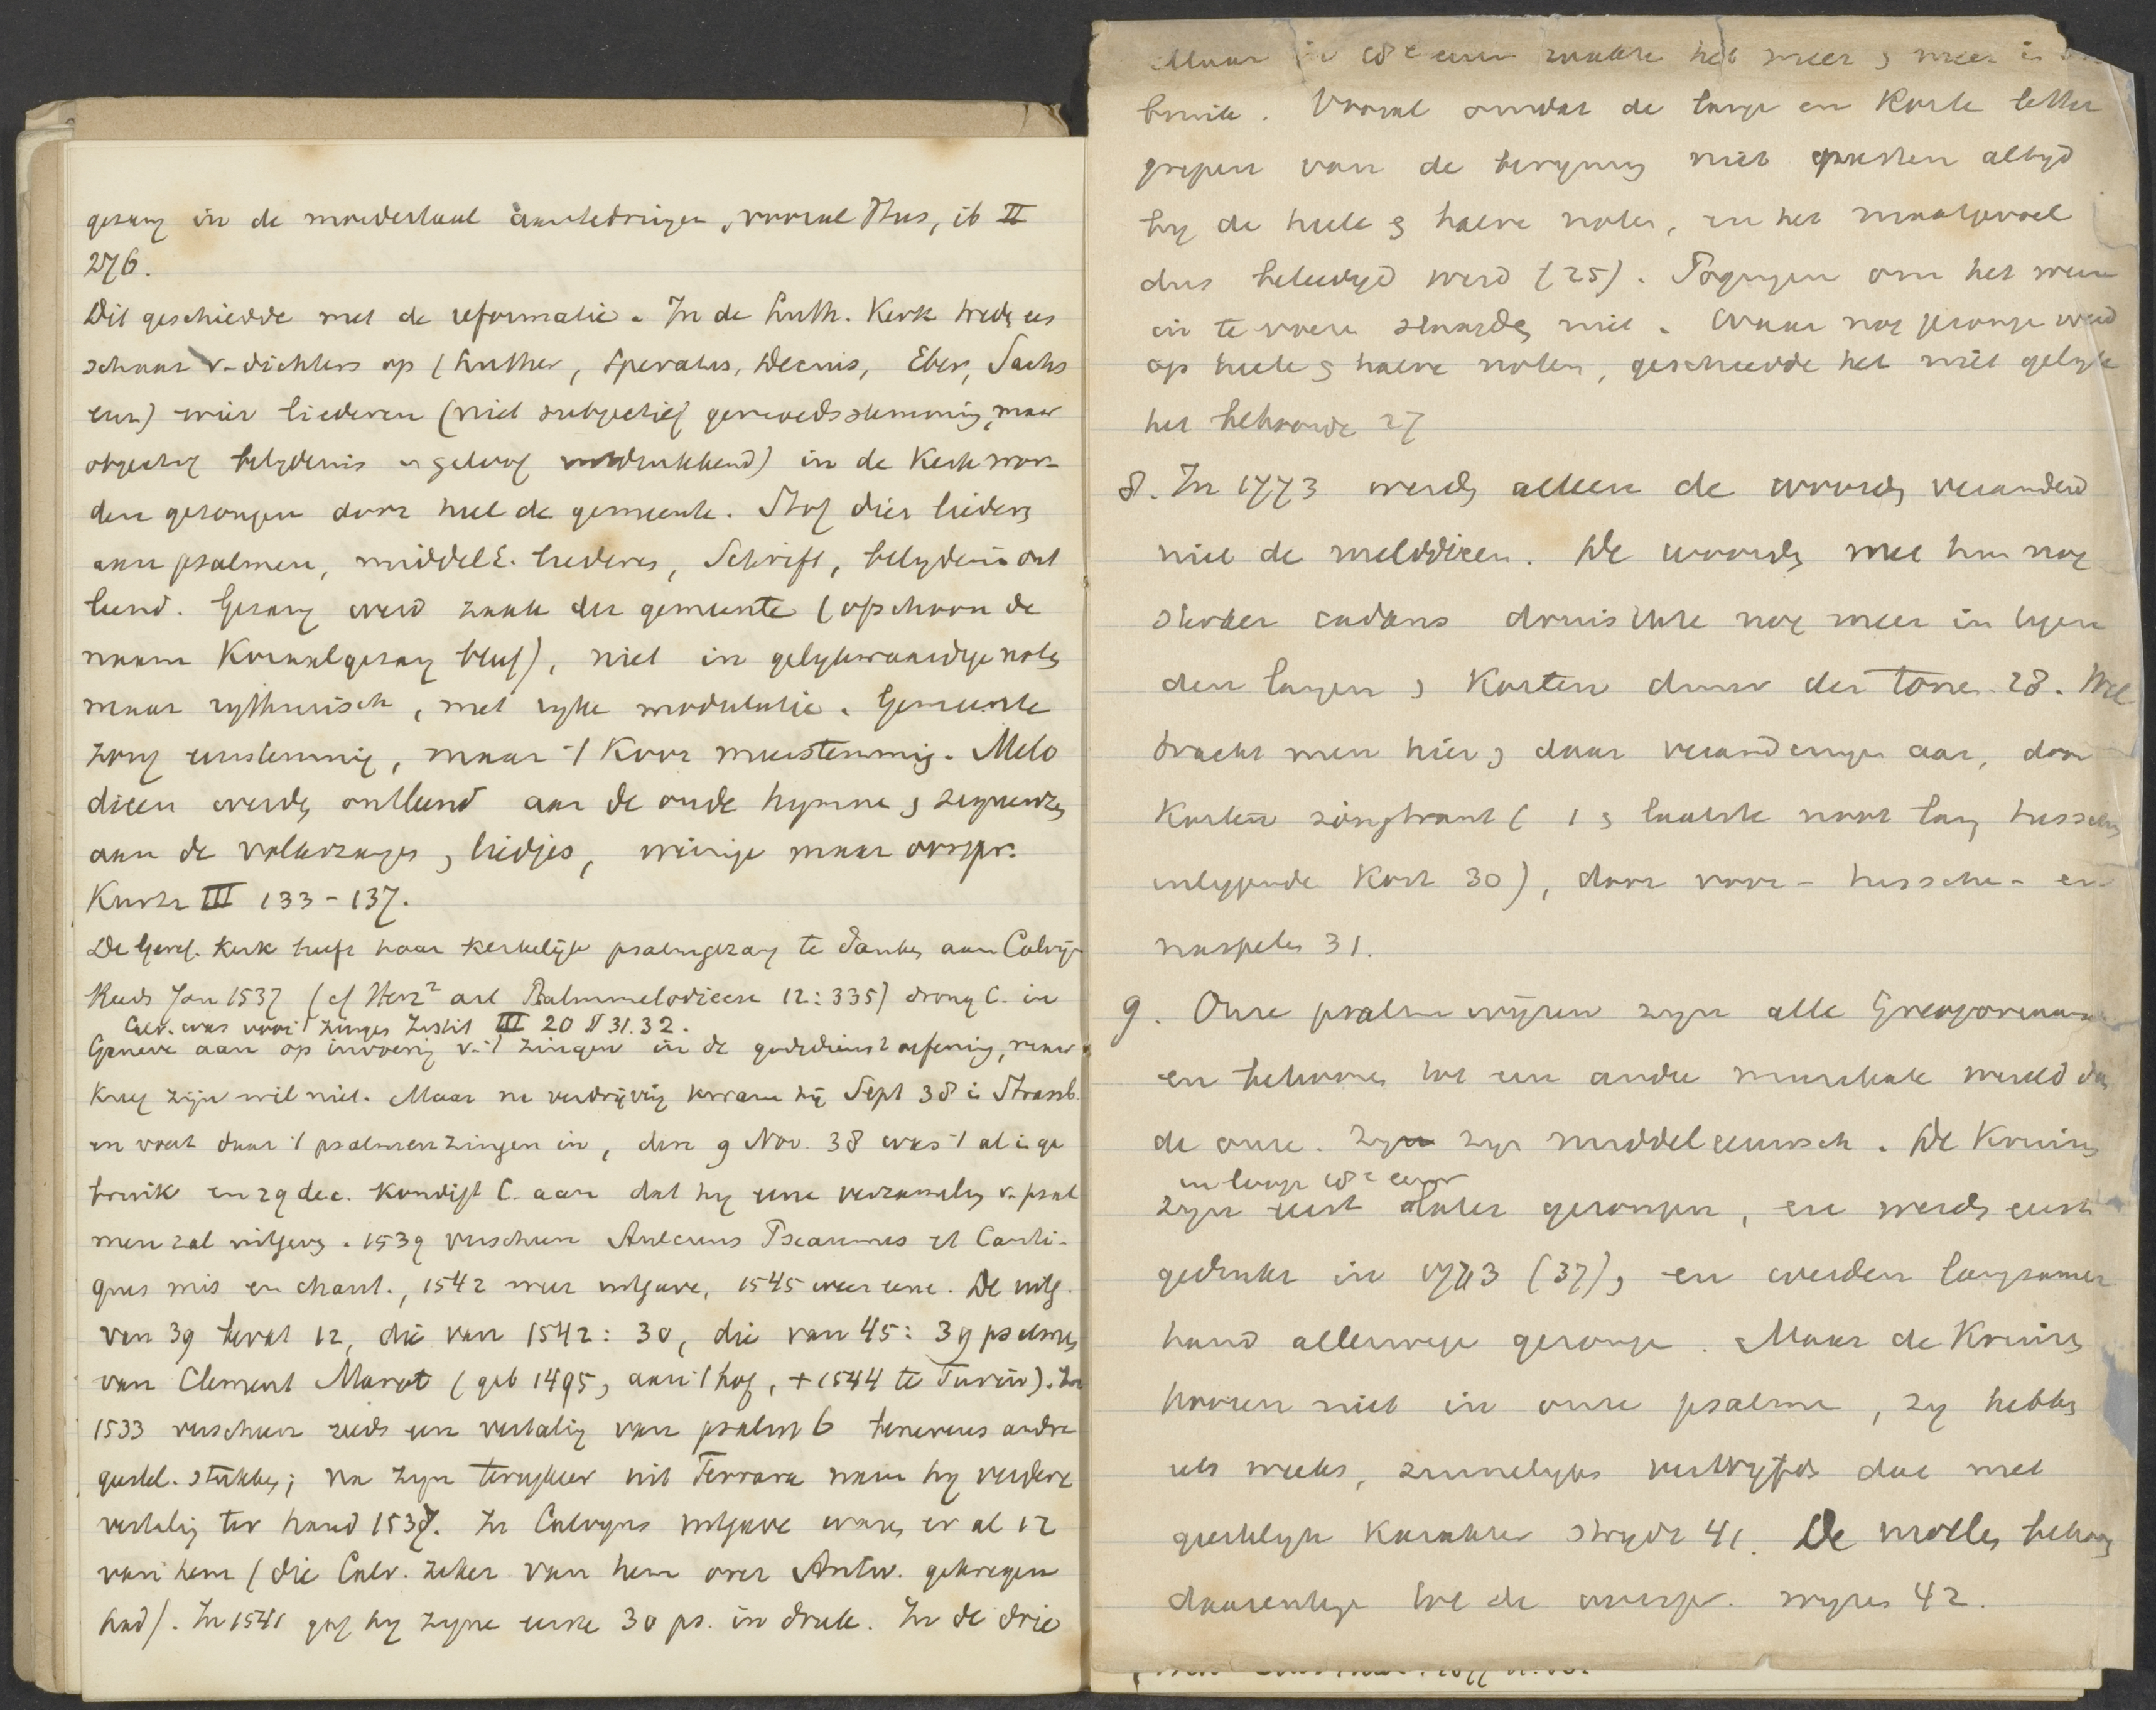 gezang in de moedertaal aan te dringen, vooral Hus, ib II
276.
Dit geschiedde met de reformatie. In de Luth. Kerk treden er
schaar v. dichters op (Luther, Speratus, Decius, Eber, Sachs
enz) wier liederen (niet subjectief gemoedsstemming, maar
objectief belydenis en geloof uitdrukkend) in de Kerk wor-
den gezongen door heel de gemeente. Stof dier liederen
aan psalmen, middelE. liederen, Schrift, belydenis ont
leend. Gezang werd zaak der gemeente (ofschoon de
naam Koraalgezang bleef), niet in gelykwaardige noten
maar rythmisch, met ryke modulatie. Gemeente
zong eenstemmig, maar 't Koor meerstemmig. Melo
dieen werden ontleend aan de oude hymnen en sequenzen
aan de volkszangen en liedjes, weinige maar oorspr.
Kurtz III 133-137.
De Geref. Kerk heeft haar kerkelijk psalmgezang te danken aan Calvijn
Reeds Jan 1537 (cf Herz² art Psalmmelodieen 12:335) drong C. in
Calv. was voor 't zingen Instit III 20 § 31.32.
Geneve aan op invoering v. 't zingen in de godsdienst oefening, maar
kreeg zijn wil niet. Maar na verdrijving kwam hij Sept 38 in Strassb.
en voert daar 't psalmenzingen in, den 9 Nov. 38 was 't al in ge
bruik en 29 dec. kondigt C. aan dat hy eene verzameling v. psal
men zal uitgeven. 1539 verscheen Aulcuns Pseaumes et Canti-
ques mis en chant., 1542 weer uitgave, 1545 weer eene. De uitg.
van 39 bevat 12, die van 1542: 30, die van 45: 39 psalmen
van Clement Marot (geb 1495, aan 't hof, + 1544 te Turin). In
1533 verscheen reeds een vertaling van psalm 6 benevens andre
geestel. stukken; na zyn terugkeer uit Ferrara nam hy verdere
vertaling ter hand 1537. In Calvyns uitgave waren er al 12
van hem (die Calv. zeker van hem over Antw. gekregen
had). In 1541 gaf hy zyne eerste 30 ps. in druk. In de drie
Maar in 18e eeuw raakte het meer en meer in
bruik. Vooral omdat de lange en korte letter
grepen van de beryming niet pasten altyd
by de heele en halve noten, en het maatgevoel
dus beleedigd werd (25). Pogingen om het weer
in te voeren slaagden niet. Waar nog gezongen werd
op heele en halve noten, geschiedde het niet gelyk
het behoorde 27
8. In 1773 werden alleen de woorden veranderd
niet de melodieen. De woorden met hun nog
cadans druischte nog meer in tegen
den langen en korten duur der tonen 28. Wel
bracht men hier en daar veranderingen aan, door
korten zingtrant (1e en laatste noot lang tusschen
inliggende kort 30), door voor- tusschen- en
naspelen 31.
9. Onze psalmwijzen zyn alle Gregoriaansch
en behooren tot een andre muzikale wereld dan
de onze. Zy zyn middeleeuwsch. De Kruizen
in loop 18e eeuw
zyn eerst later gezongen, en werden eerst
gedrukt in 1773 (37), en werden langzamer
hand allerwege gezongen. Maar de Kruizen
hooren niet in onze psalmen, zy hebben
iets weeks, zinnelyks dat met
geestelyk karakter strydt 41. De mollen behooren
daarentegen tot de oorspr. wyzen 42.